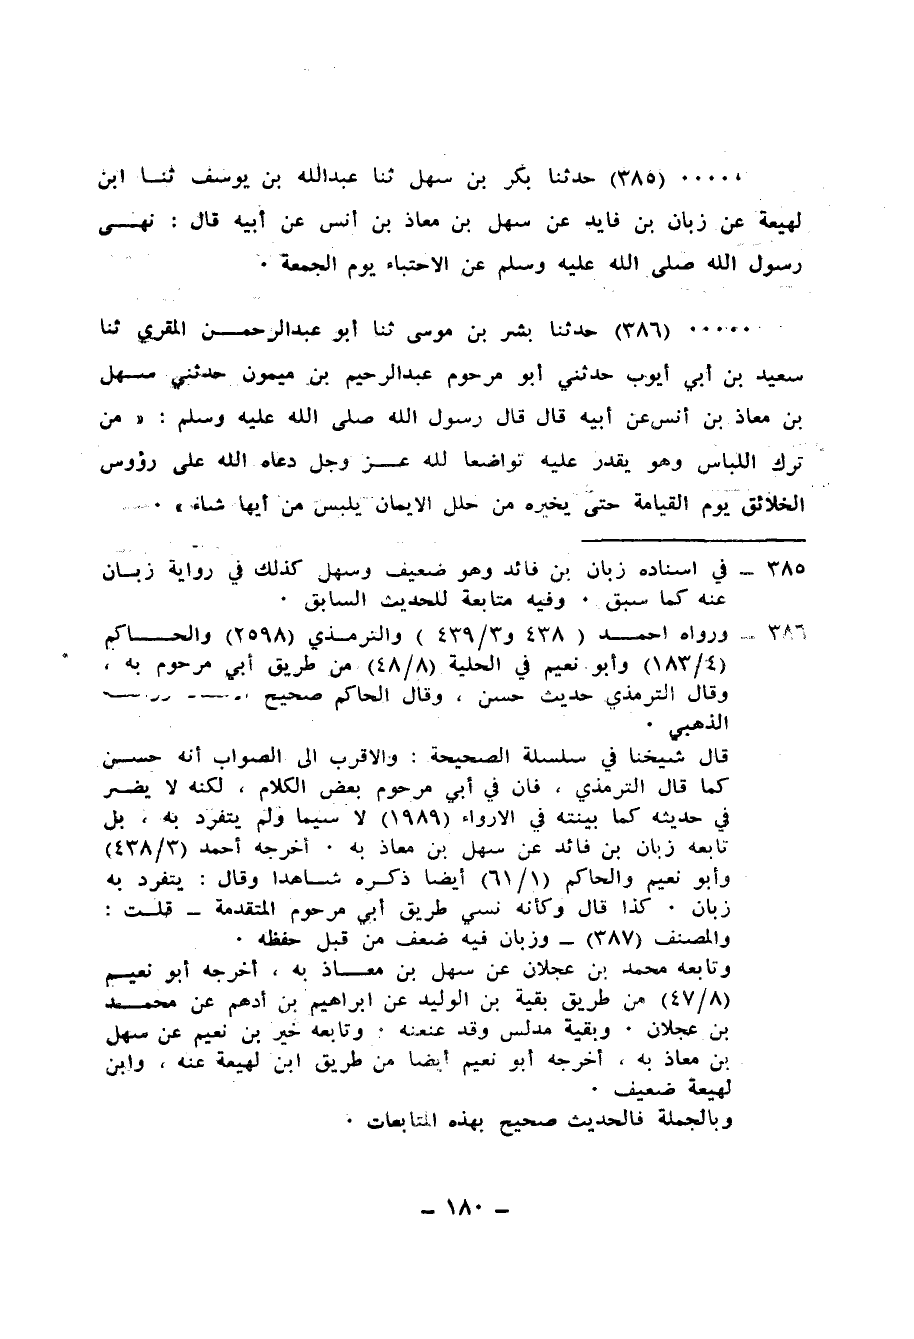 ٠٠٠٠٠ (٣٨٥) حدثنا بكر بن سهل ثنا عبدالله بن يوسف ثنا ابن
لهيعة عن زبان بن فايد عن سهل بن معاذ بن أنس عن أبيه قال : نهى
رسول الله صلى الله عليه وسلم عن الاحتباء يوم الجمعة ٠
٠٠٠٠٠ (٣٨٦) حدثنا بشر بن موسى ثنا أبو عبدالرحمن المقري ثنا
سعيد بن أبي أيوب حدثني أبو مرحوم عبدالرحيم بن ميمون حدثني سهل
بن معاذ بن أنس عن أبيه قال قال رسول الله صلى الله عليه وسلم : « من
ترك اللباس وهو يقدر عليه تواضعا لله عز وجل دعاه الله على رؤوس
الخلائق يوم القيامة حتى يخيره من حلل الايمان يلبس من أيها شاء » ٠
٣٨٥ ــ في اسناده زبان بن فائد وهو ضعيف وسهل كذلك في رواية زبان
عنه كما سبق ٠ وفيه متابعة للحديث السابق ٠
٣٨٦ ــ ورواه احمد ( ٤٣٨ و٤٣٩/٣ ) والترمذي (٢٥٩٨) والحاكم
(١٨٣/٤) وأبو نعيم في الحلية (٤٨/٨) من طريق أبي مرحوم به ،
وقال الترمذي حديث حسن ، وقال الحاكم صحيح
الذهبي ٠
قال شيخنا في سلسلة الصحيحة : والاقرب الى الصواب أنه حسن
كما قال الترمذي ، فان في أبي مرحوم بعض الكلام ، لكنه لا يضر
في حديثه كما بينته في الارواء (١٩٨٩) لا سيما ولم يتفرد به ، بل
تابعه زبان بن فائد عن سهل بن معاذ به ٠ أخرجه أحمد (٤٣٨/٣)
وأبو نعيم والحاكم (٦١/١) أيضا ذكره شاهدا وقال : يتفرد به
زبان ٠ كذا قال وكأنه نسي طريق أبي مرحوم المتقدمة ــ قلت :
والمصنف (٣٨٧) ــ وزبان فيه ضعف من قبل حفظه ٠
وتابعه محمد بن عجلان عن سهل بن معاذ به ، أخرجه أبو نعيم
(٤٧/٨) من طريق بقية بن الوليد عن ابراهيم بن أدهم عن محمد
بن عجلان ٠ وبقية مدلس وقد عنعنه ٠ وتابعه خير بن نعيم عن سهل
بن معاذ به ، أخرجه أبو نعيم أيضا من طريق ابن لهيعة عنه ، وابن
لهيعة ضعيف ٠
وبالجملة فالحديث صحيح بهذه المتابعات ٠
ــ ١٨٠ ــ